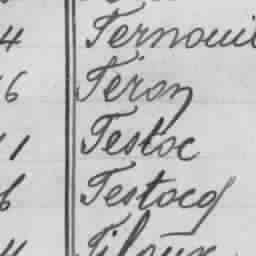 4 Ternouil
6 Feron
1 Testoc
6 Testocq
4 Tiloux